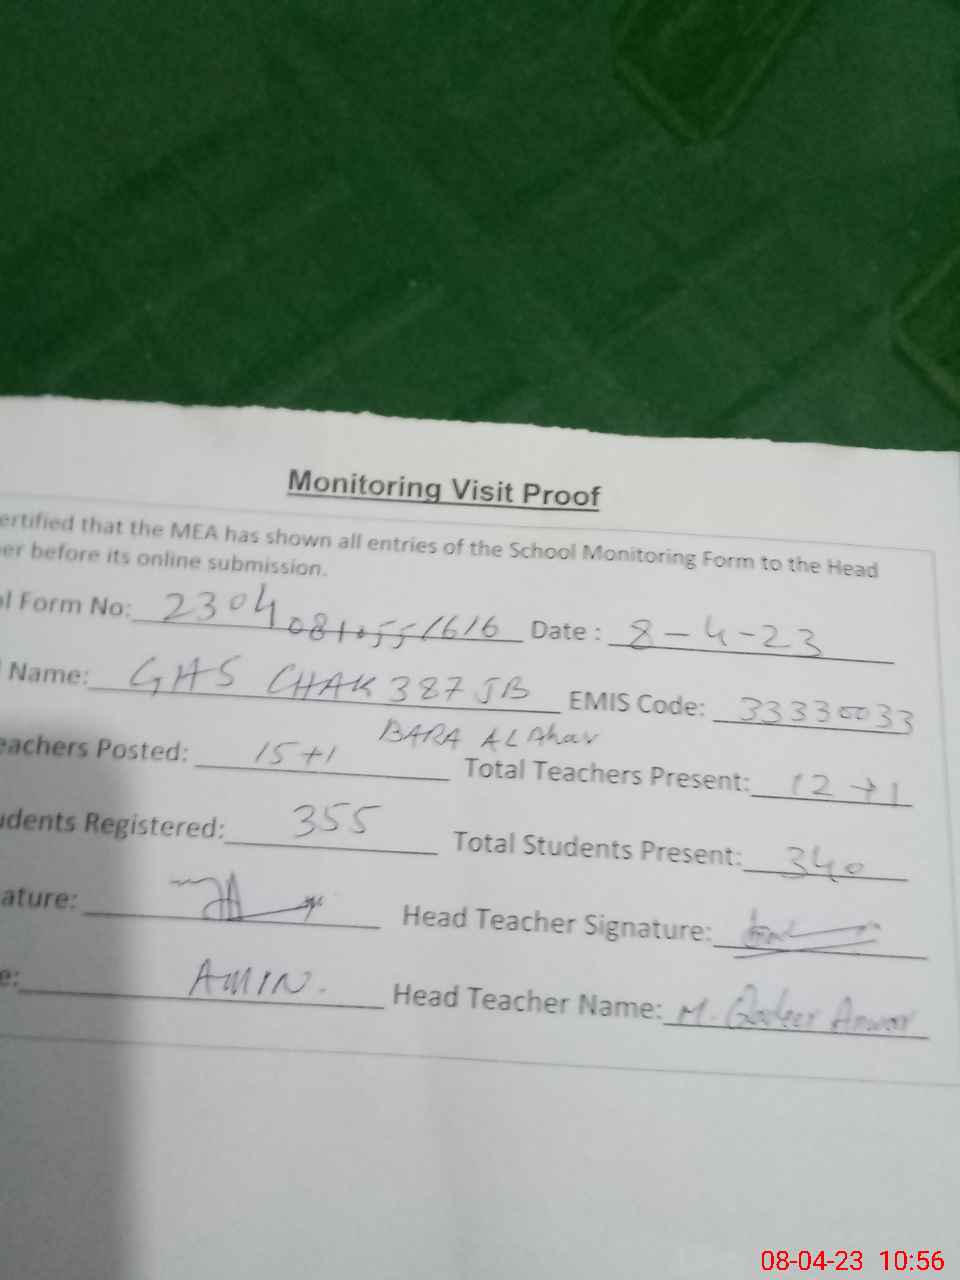 Monitoring Visit Proof
ertified that the MEA has shown all entries of the School Monitoring Form to the Head
er before its online submission.
ol Form No: 23040810551616 Date : 8-4-23
Name: GHS CHAK 387 JB EMIS Code: 33330033
BARA AL Ahar
eachers Posted: 15+1 Total Teachers Present: 12+1
udents Registered: 355 Total Students Present: 340
ature: Head Teacher Signature:
e: AMIN. Head Teacher Name: M. Qadeer Anwar
08-04-23 10:56